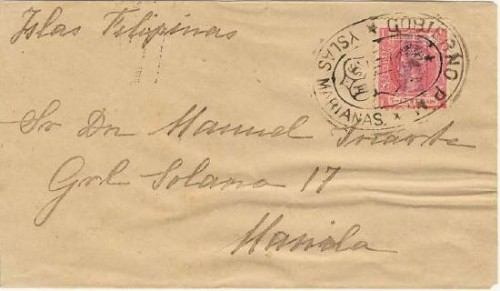 Yslas Filipinas
YSLAS MARIANAS.
Sr Dn Manuel Iriarte
Grl Solano 17
Manila